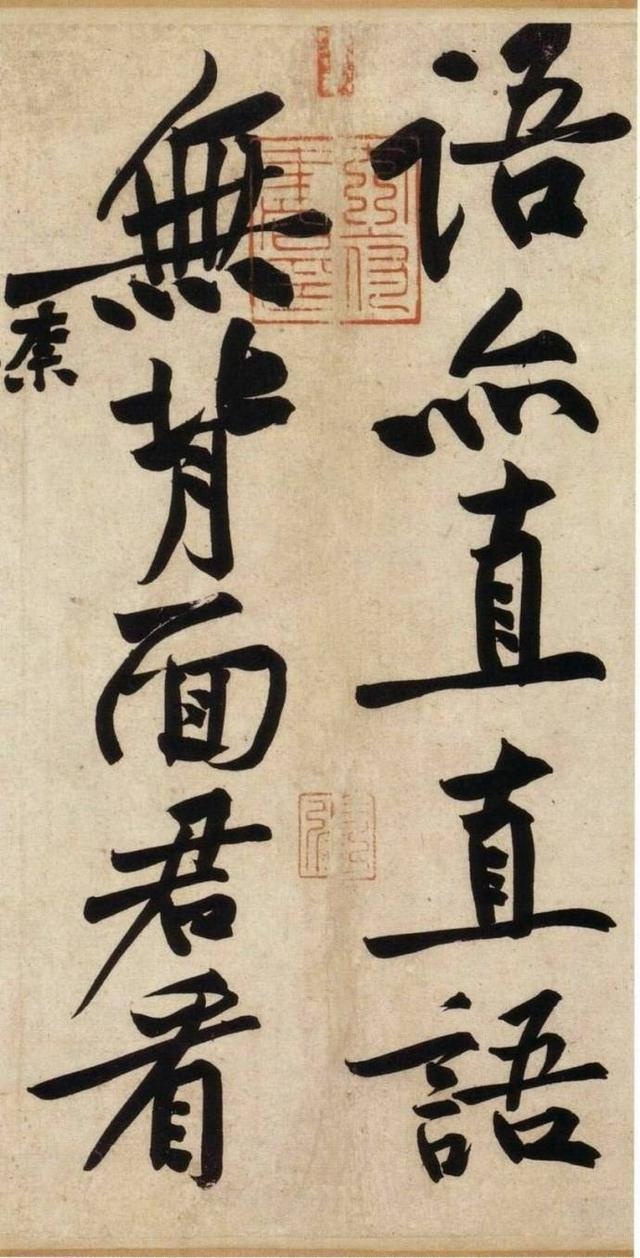 語亦直直語
無背面君看
柰